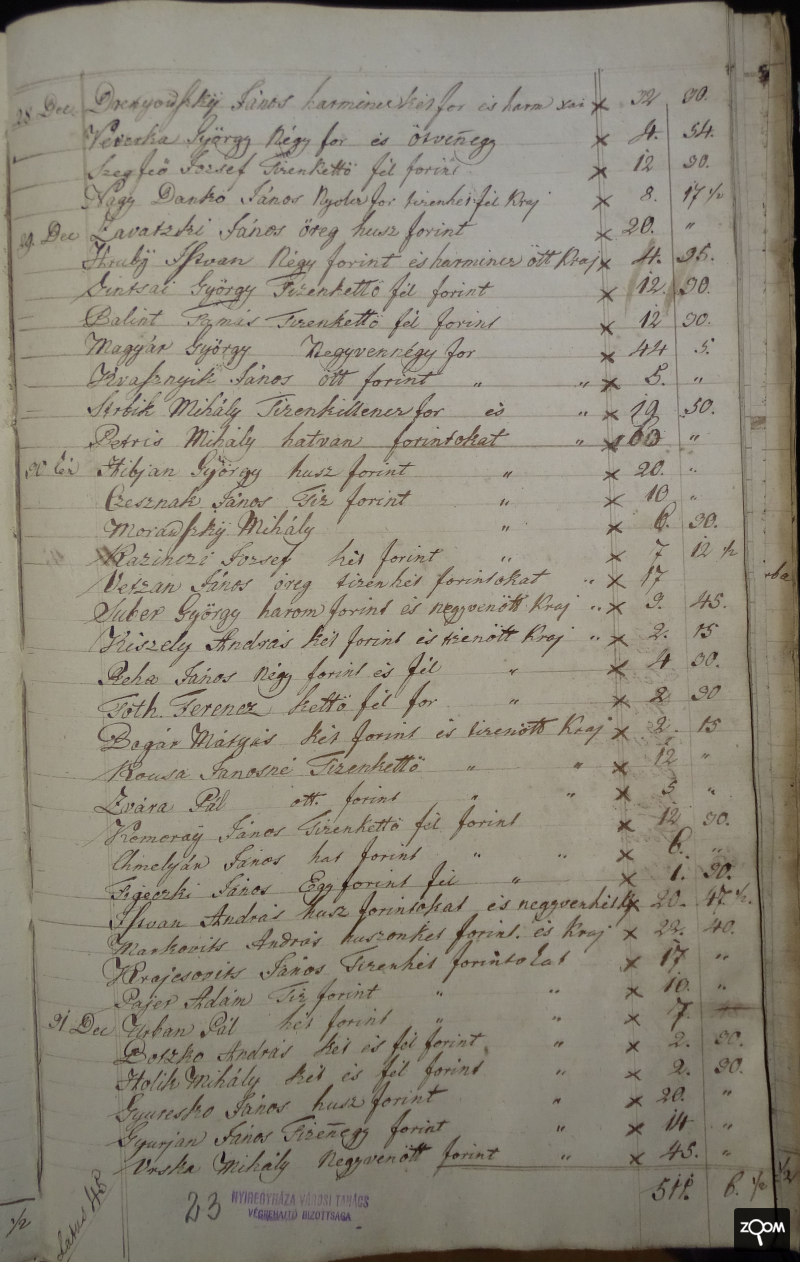 28 Dec Drenyowſzkÿ János harmincz két for és harm xai x 32 30.
Veverka György Négy for és ötvenegy x 4. 54.
Szegfeő József Tizenkettö fél forint x 12 30.
Nagy Dankó János Nyolcz for tizenhét fél Kraj x 8. 17 ½
29 Dec Zavatzki János öreg husz forint x 20. "
Hrubÿ Iſtvan Négy forint és harmincz ött Kraj x 4. 35.
Sintsai György Tizenkettö fél forint x 12. 30.
Balint Tamás Tizenkettö fél forint x 12 30.
Magyár György Negyvennégy for x 44 5.
Kvaſznyik János ött forint " " x 5. "
Strbik Mihály Tizenkillencz for és " x 19 50.
Petris Mihály hatvan forintokat " x 60 "
30 Hibjan György husz forint " x 20. "
Czesznak János Tíz forint " x 10 "
Morawſzkÿ Mihály " x 6. 30.
Kazinczi József hét forint " x 7 12 ½
Veszan János öreg tizenhét forintokat " x 17
Suber György harom forint és negyvenött Kraj " x 3. 45.
Kiszely András két forint és tizenött Kraj " x 2. 15
Reha János Négy forint és fél " x 4 30.
Tóth Ferencz kettö fél for " x 2 30
Bogár Mátyás két forint és tizenött Kraj x 2. 15
Kousa Janosné Tizenkettö " " x 12 "
Zvára Pál ött. forint " " x 5 "
Komoraÿ János Tizenkettö fél forint x 12 30.
Chmelyár János hat forint " " x 6. "
Figeczki János Egy forint fél " x 1. 30.
Iſtvan András husz forintokat és negyvenhét x 20. 47 ½.
Markovits András huszonkét forint. és Kraj x 22. 40.
Krajcsovits János Tizenhét forintokat x 17 "
Pajer Adám Tiz forint " " x 10. "
31 Dec Urban Pál hét forint " " x 7.
Boszko András két és fél forint " x 2. 30.
Holik Mihály két és fél forint " x 2. 30.
Gyuresko János husz forint " x 20. "
Gyurján János Tizenegy forint " x 11 "
Vrska Mihály Negyvenött forint " x 45. "
511. 6. ½
½
Latus 48
23
NYIREGYHÁZA VÁROSI TANÁCS
VÉGREHAJTÓ BIZOTTSÁGA
½
ZOOM